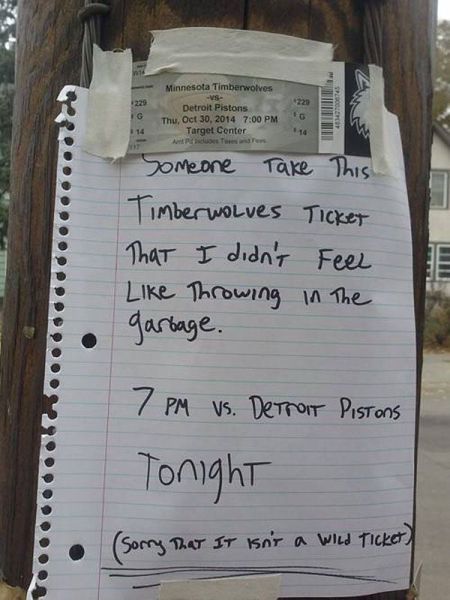 Minnesota Timberwolves
-vs-
Detroit Pistons
Thu, Oct 30, 2014 7:00 PM
Target Center
Amt Pd Includes Taxes and Fees
229
G
14
229
G
14
Someone Take This
Timberwolves Ticket
That I didn't Feel
Like Throwing in The
garbage.
7 PM vs. Detroit Pistons
Tonight
(Sorry That It Isn't a Wild Ticket)